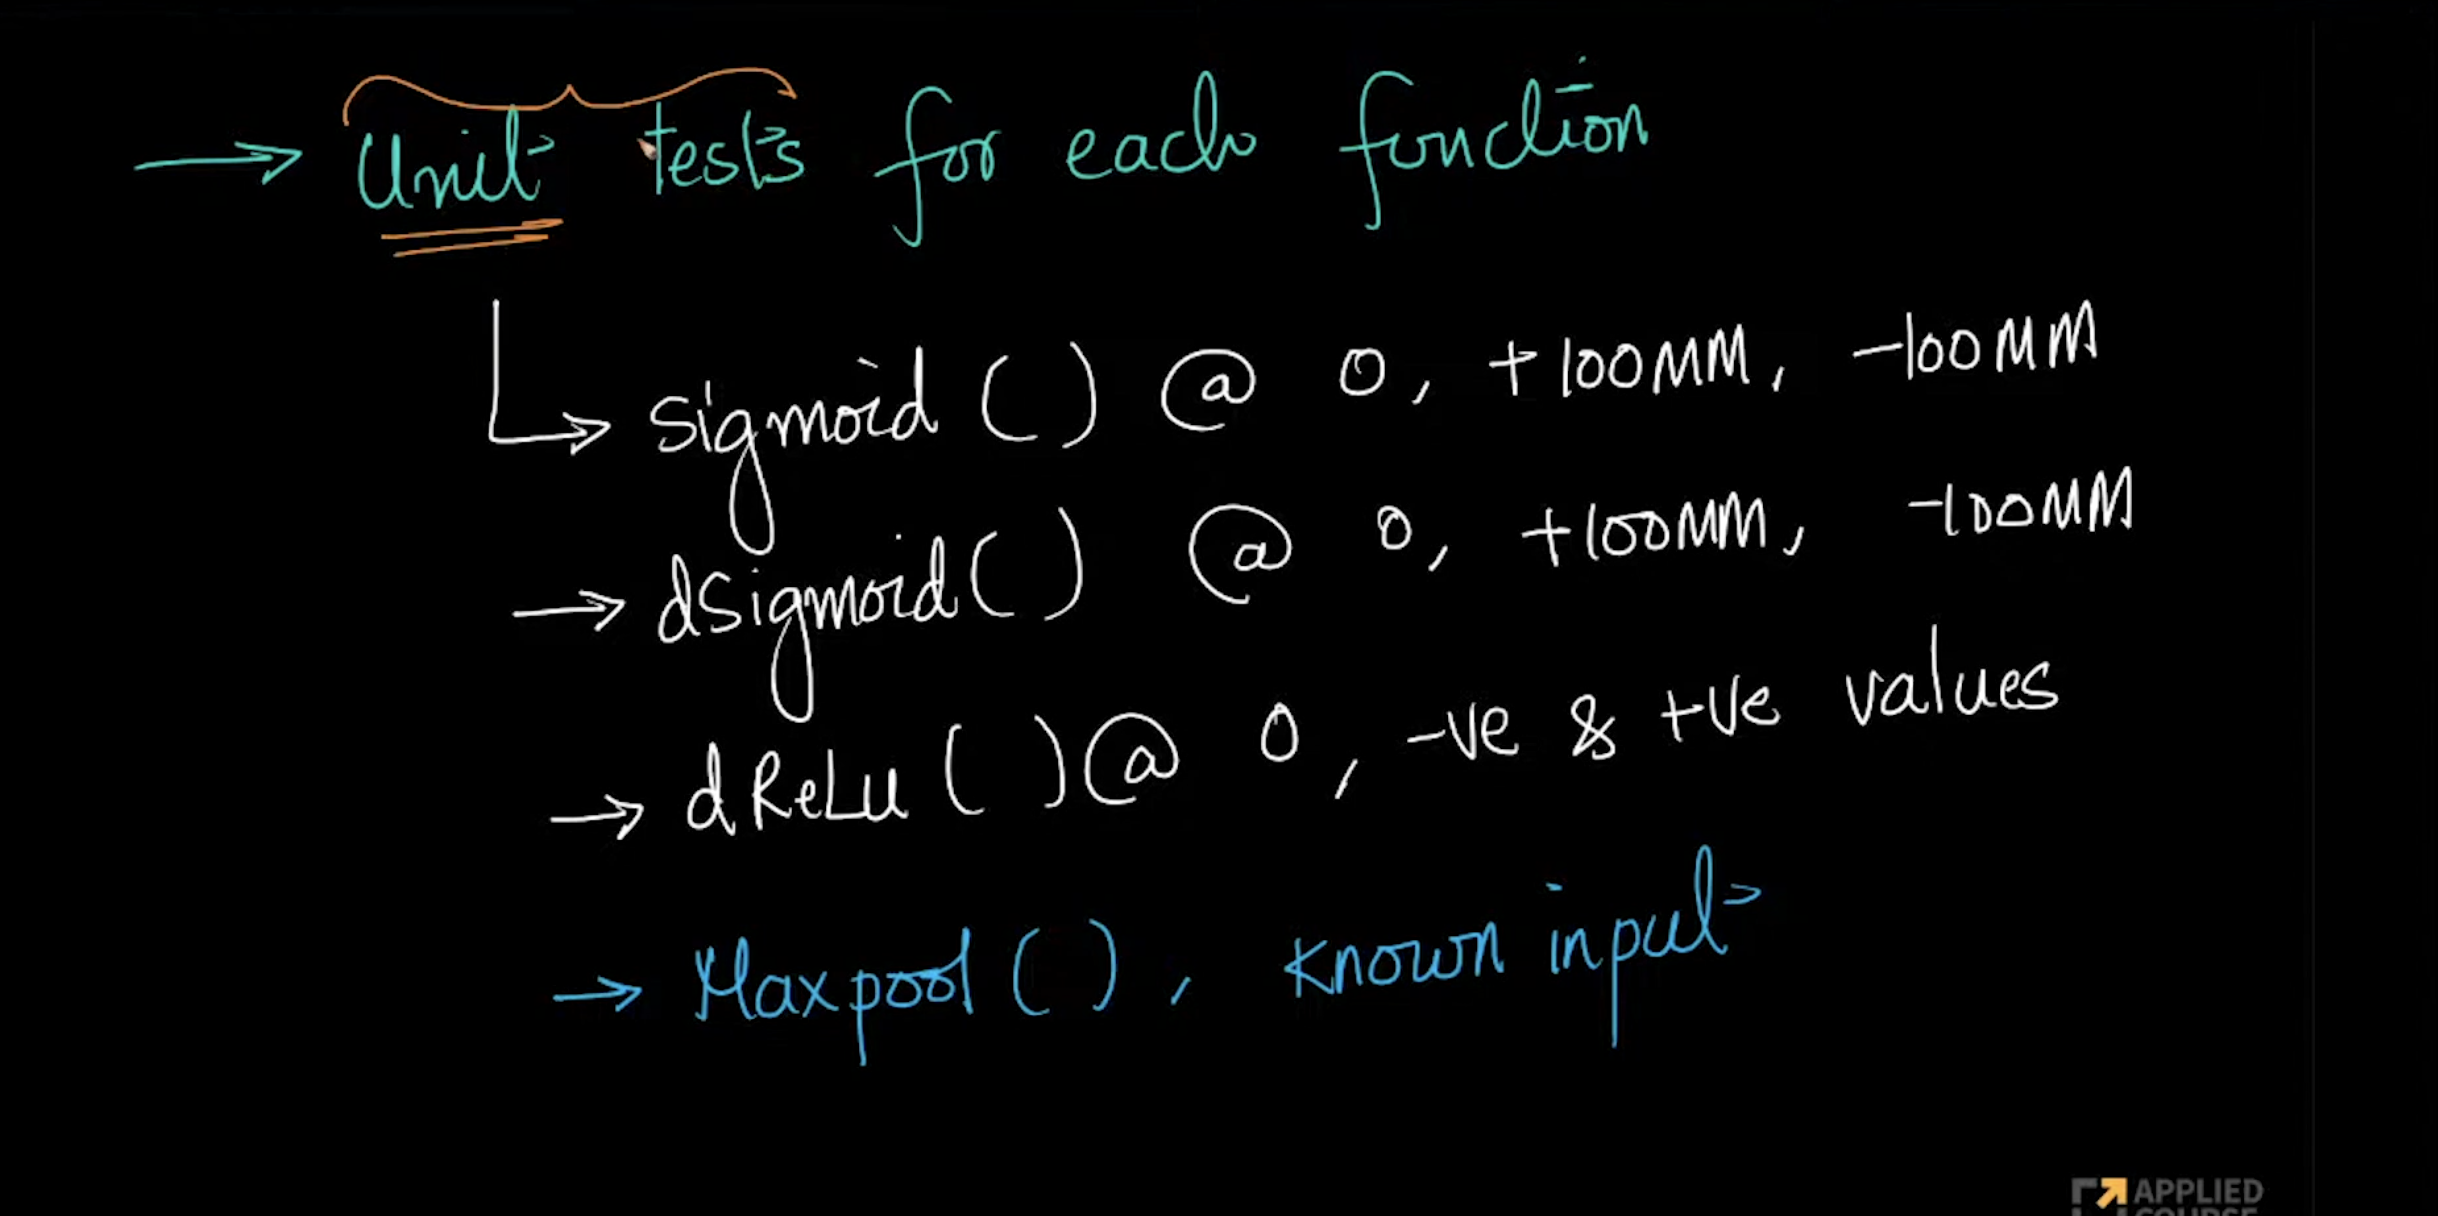 → Unit tests for each function
↳ sigmoid ( ) @ 0, +100MM, -100MM
→ dsigmoid ( ) @ 0, +100MM, -100MM
→ dReLu ( ) @ 0, -ve & +ve values
→ Maxpool ( ), known input
APPLIED
COURSE